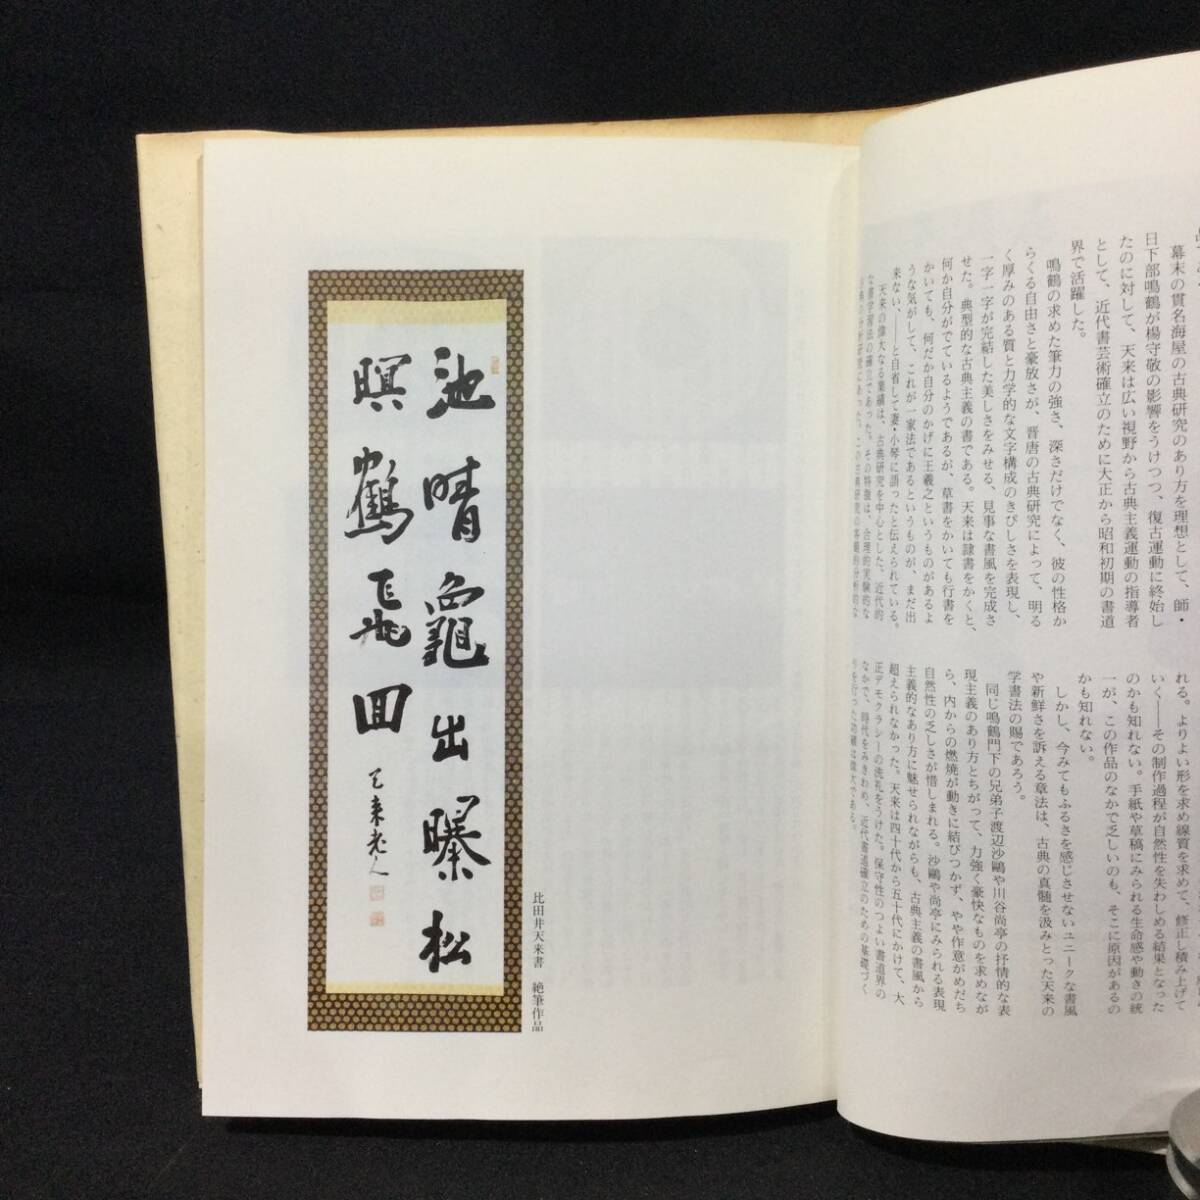 幕末の貫名海屋の古典研究のあり方を理想として、師・
日下部鳴鶴が楊守敬の影響をうけつつ、復古運動に終始し
たのに対して、天来は広い視野から古典主義運動の指導者
として、近代書芸術確立のために大正から昭和初期の書道
界で活躍した。
鳴鶴の求めた筆力の強さ、深さだけでなく、彼の性格か
らくる自由さと豪放さが、晋唐の古典研究によって、明る
く厚みのある質と力学的な文字構成のきびしさを表現し、
一字一字が完結した美しさをみせる、見事な書風を完成さ
せた。典型的な古典主義の書である。天来は隷書をかくと、
何か自分がでているようであるが、草書をかいても行書を
かいても、何だか自分のかげに王羲之というものがあるよ
うな気がして、これが一家法であるというものが、まだ出
来ない、――と自省して妻・小琴に語ったと伝えられている。
天来の偉大なる業績は、古典研究を中心とした、近代的
な書学習法の確立であった。その特徴は、合理的実験的な
れる。よりよい形を求め線質を求めて、修正し積み上げて
いく――その制作過程が自然性を失わしめる結果となった
のかも知れない。手紙や草稿にみられる生命感や動きの統
一が、この作品のなかで乏しいのも、そこに原因があるの
かも知れない。
しかし、今みてもふるさを感じさせないユニークな書風
や新鮮さを訴える章法は、古典の真髄を汲みとった天来の
学書法の賜であろう。
同じ鳴鶴門下の兄弟子渡辺沙鷗や川谷尚亭の抒情的な表
現主義のあり方とちがって、力強く豪快なものを求めなが
ら、内からの燃焼が動きに結びつかず、やや作意がめだち
自然性の乏しさが惜しまれる。沙鷗や尚亭にみられる表現
主義的なあり方に魅せられながらも、古典主義の書風から
超えられなかった。天来は四十代から五十代にかけて、大
正デモクラシーの洗礼をうけた。保守性のつよい書道界の
なかで、時代をみきわめ、近代書道確立のための基礎づく
りを行った功績は偉大である。
池晴龜出曝松
暝鶴飛回
天来老人
比田井天来書　絶筆作品